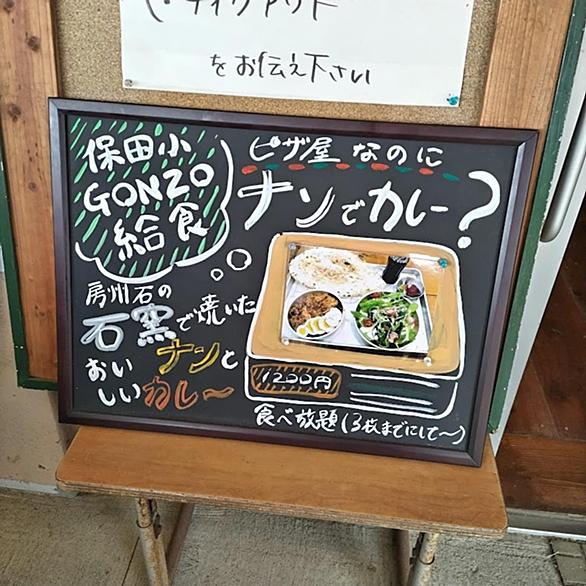 テイクアウト
をお伝え下さい
保田小
GONZO
給食
ピザ屋なのに
ナンでカレー?
房州石の
石窯で焼いた
ナンと
おいしいカレー〜
1200円
食べ放題(3枚までにして〜)